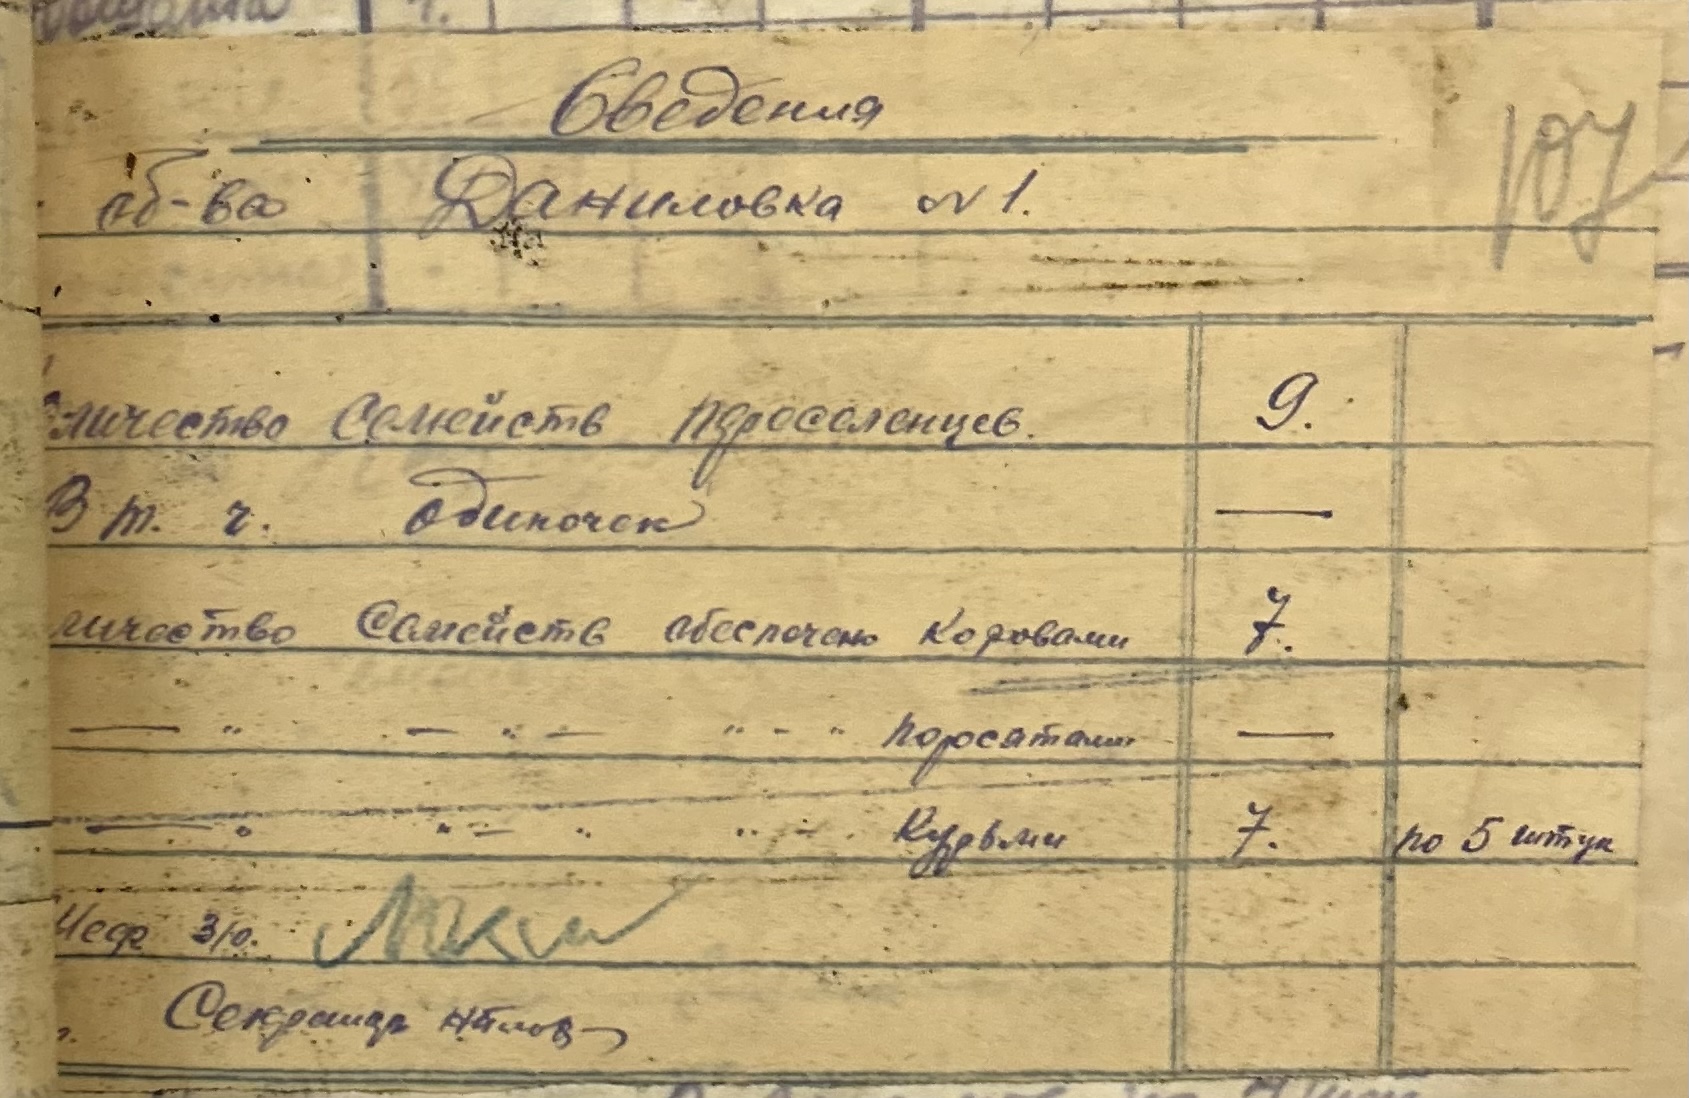 Сведения
107
об-во Даниловка №1.
личество Семейств переселенцев. 9.
В т. ч. одиночек —
личество Семейств обеспечено коровами 7.
— " — " — " - " поросятами —
— " " — " " — Курьми 7. по 5 штук
з/о.
Секретарь